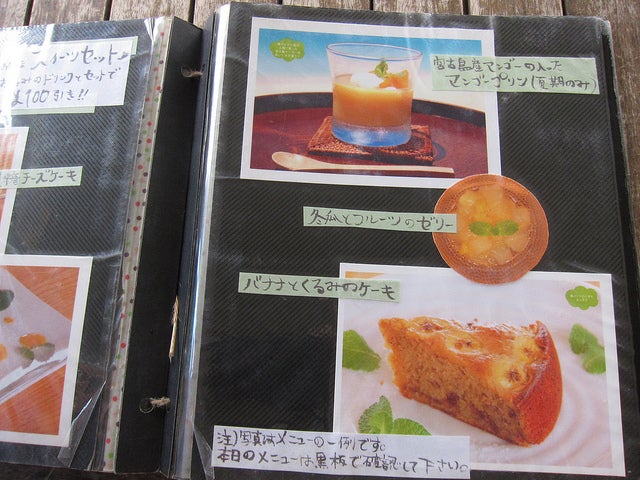 スイーツセット
ドリンクとセットで
¥100引き!!
チーズケーキ
宮古島産マンゴーの入った
マンゴープリン(夏期のみ)
冬瓜とフルーツのゼリー
バナナとくるみのケーキ
注)写真はメニューの一例です。
本日のメニューは黒板で確認して下さい。